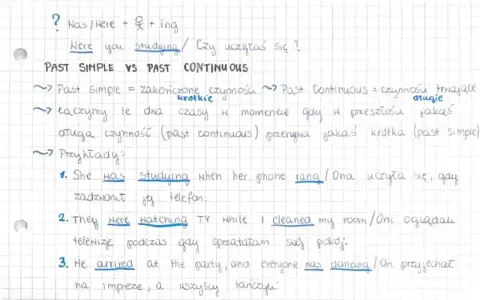 ? Was/Were + + ing
Were you studying / Czy uczyłaś się?
PAST SIMPLE VS PAST CONTINUOUS
Past Simple = zakończone czynności Past Continuous = czynności trwające
krótkie długie
Łączymy te dwa czasy w momencie gdy w przeszłości jakąś
długą czynność (past continuous) przerywa jakaś krótka (past simple)
Przykłady:
1. She was studying when her phone rang / Ona uczyła się, gdy
zadzwonił jej telefon.
2. They were watching TV while I cleaned my room / Oni oglądali
telewizję podczas gdy sprzątałam swój pokój.
3. He arrived at the party, and everyone was dancing / On przyjechał
na imprezę, a wszyscy tańczyli.